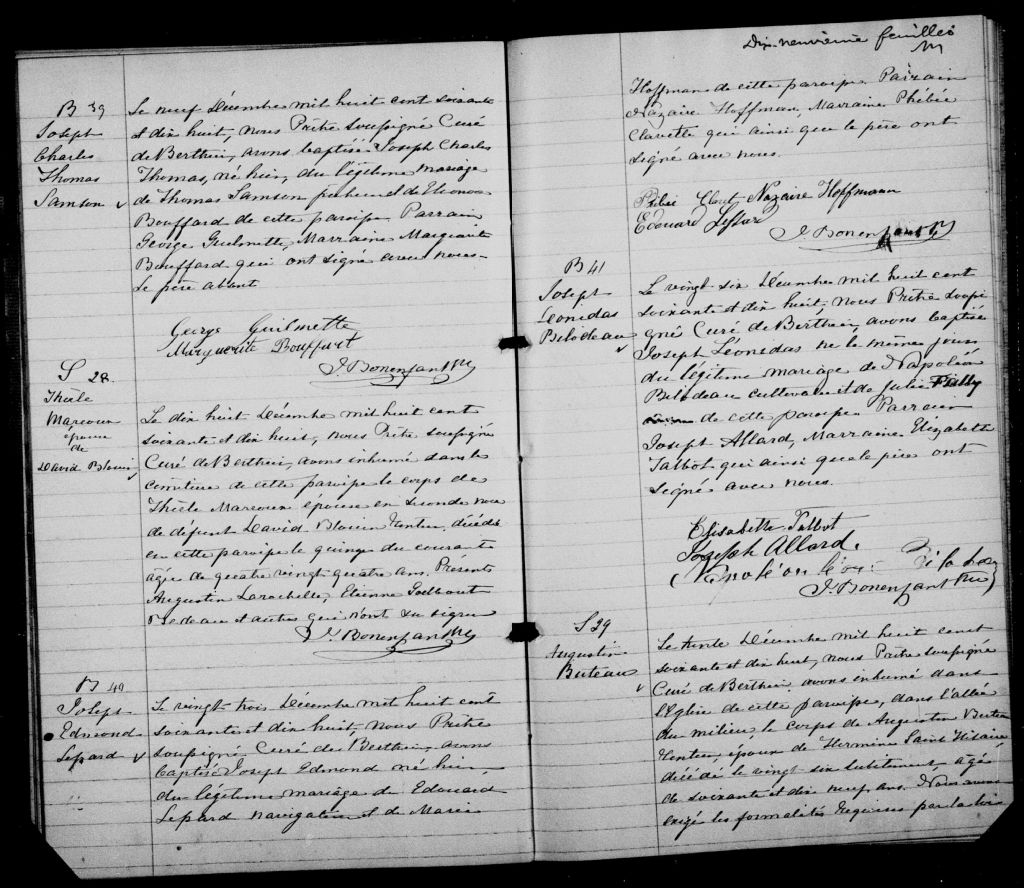 B 39
Joseph
Charles
Thomas
Samson
Le neuf Décembre mil huit cent soixante
et dix huit, nous Prêtre soussigné Curé
de Berthier, avons baptisé Joseph Charles
Thomas, né hier, du légitime mariage
de Thomas Samson et de Eleonore
Bouffard de cette paroisse Parrain
George Guilmette, Marraine Marguerite
Bouffard qui ont signé avec nous.
Le père absent
George Guilmette
Marguerite Bouffart
J. Bonenfant Ptre
S 28.
Thècle
Marcoux
épouse
de
David Blouin
Le dix huit Décembre mil huit cent
soixante et dix huit, nous Prêtre soussigné
Curé de Berthier, avons inhumé dans le
cimetière de cette paroisse le corps de
Thècle Marcoux épouse en seconde noce
de défunt David Blouin Rentier, décédée
en cette paroisse le quinze du courant
âgée de quatre vingt quatre ans. Présents
Augustin Larochelle, Etienne Godbout
Bedeau et autres qui n'ont su signer
J. Bonenfant Ptre
B 40
Joseph
Edmond
Lepard
Le vingt trois Décembre mil huit cent
soixante et dix huit, nous Prêtre
soussigné Curé de Berthier, avons
baptisé Joseph Edmond né hier,
du légitime mariage de Edouard
Lepard navigateur et de Marie
Dix-neuvième feuillet
Hoffman de cette paroisse Parrain
Nazaire Hoffman, Marraine Phébée
Clavette qui ainsi que le père ont
signé avec nous.
Nazaire Hoffmann
Edouard
J. Bonenfant Ptre
B 41
Joseph
Leonidas
Belodeau
Le vingt six Décembre mil huit cent
soixante et dix huit, nous Prêtre soussi
gné Curé de Berthier, avons baptisé
Joseph Léonidas né le même jour
du légitime mariage de Napoléon
Belodeau cultivateur et de Julie
de cette paroisse Parrain
Joseph Allard, Marraine Elizabeth
Talbot qui ainsi que le père ont
signé avec nous.
Elisabette Talbot
Joseph Allard.
Napoléon
J. Bonenfant Ptre
S 29
Augustin
Buteau
Le trente Décembre mil huit cent
soixante et dix huit, nous Prêtre soussigné
Curé de Berthier, avons inhumé dans
l'Eglise de cette paroisse, dans l'allée
du milieu, le corps de Augustin Buteau
Rentier, époux de Hermine Saint Hilaire
décédé le vingt six subitement, âgé
de soixante et dix neuf ans. Nous avons
exigé les formalités requises par la loi